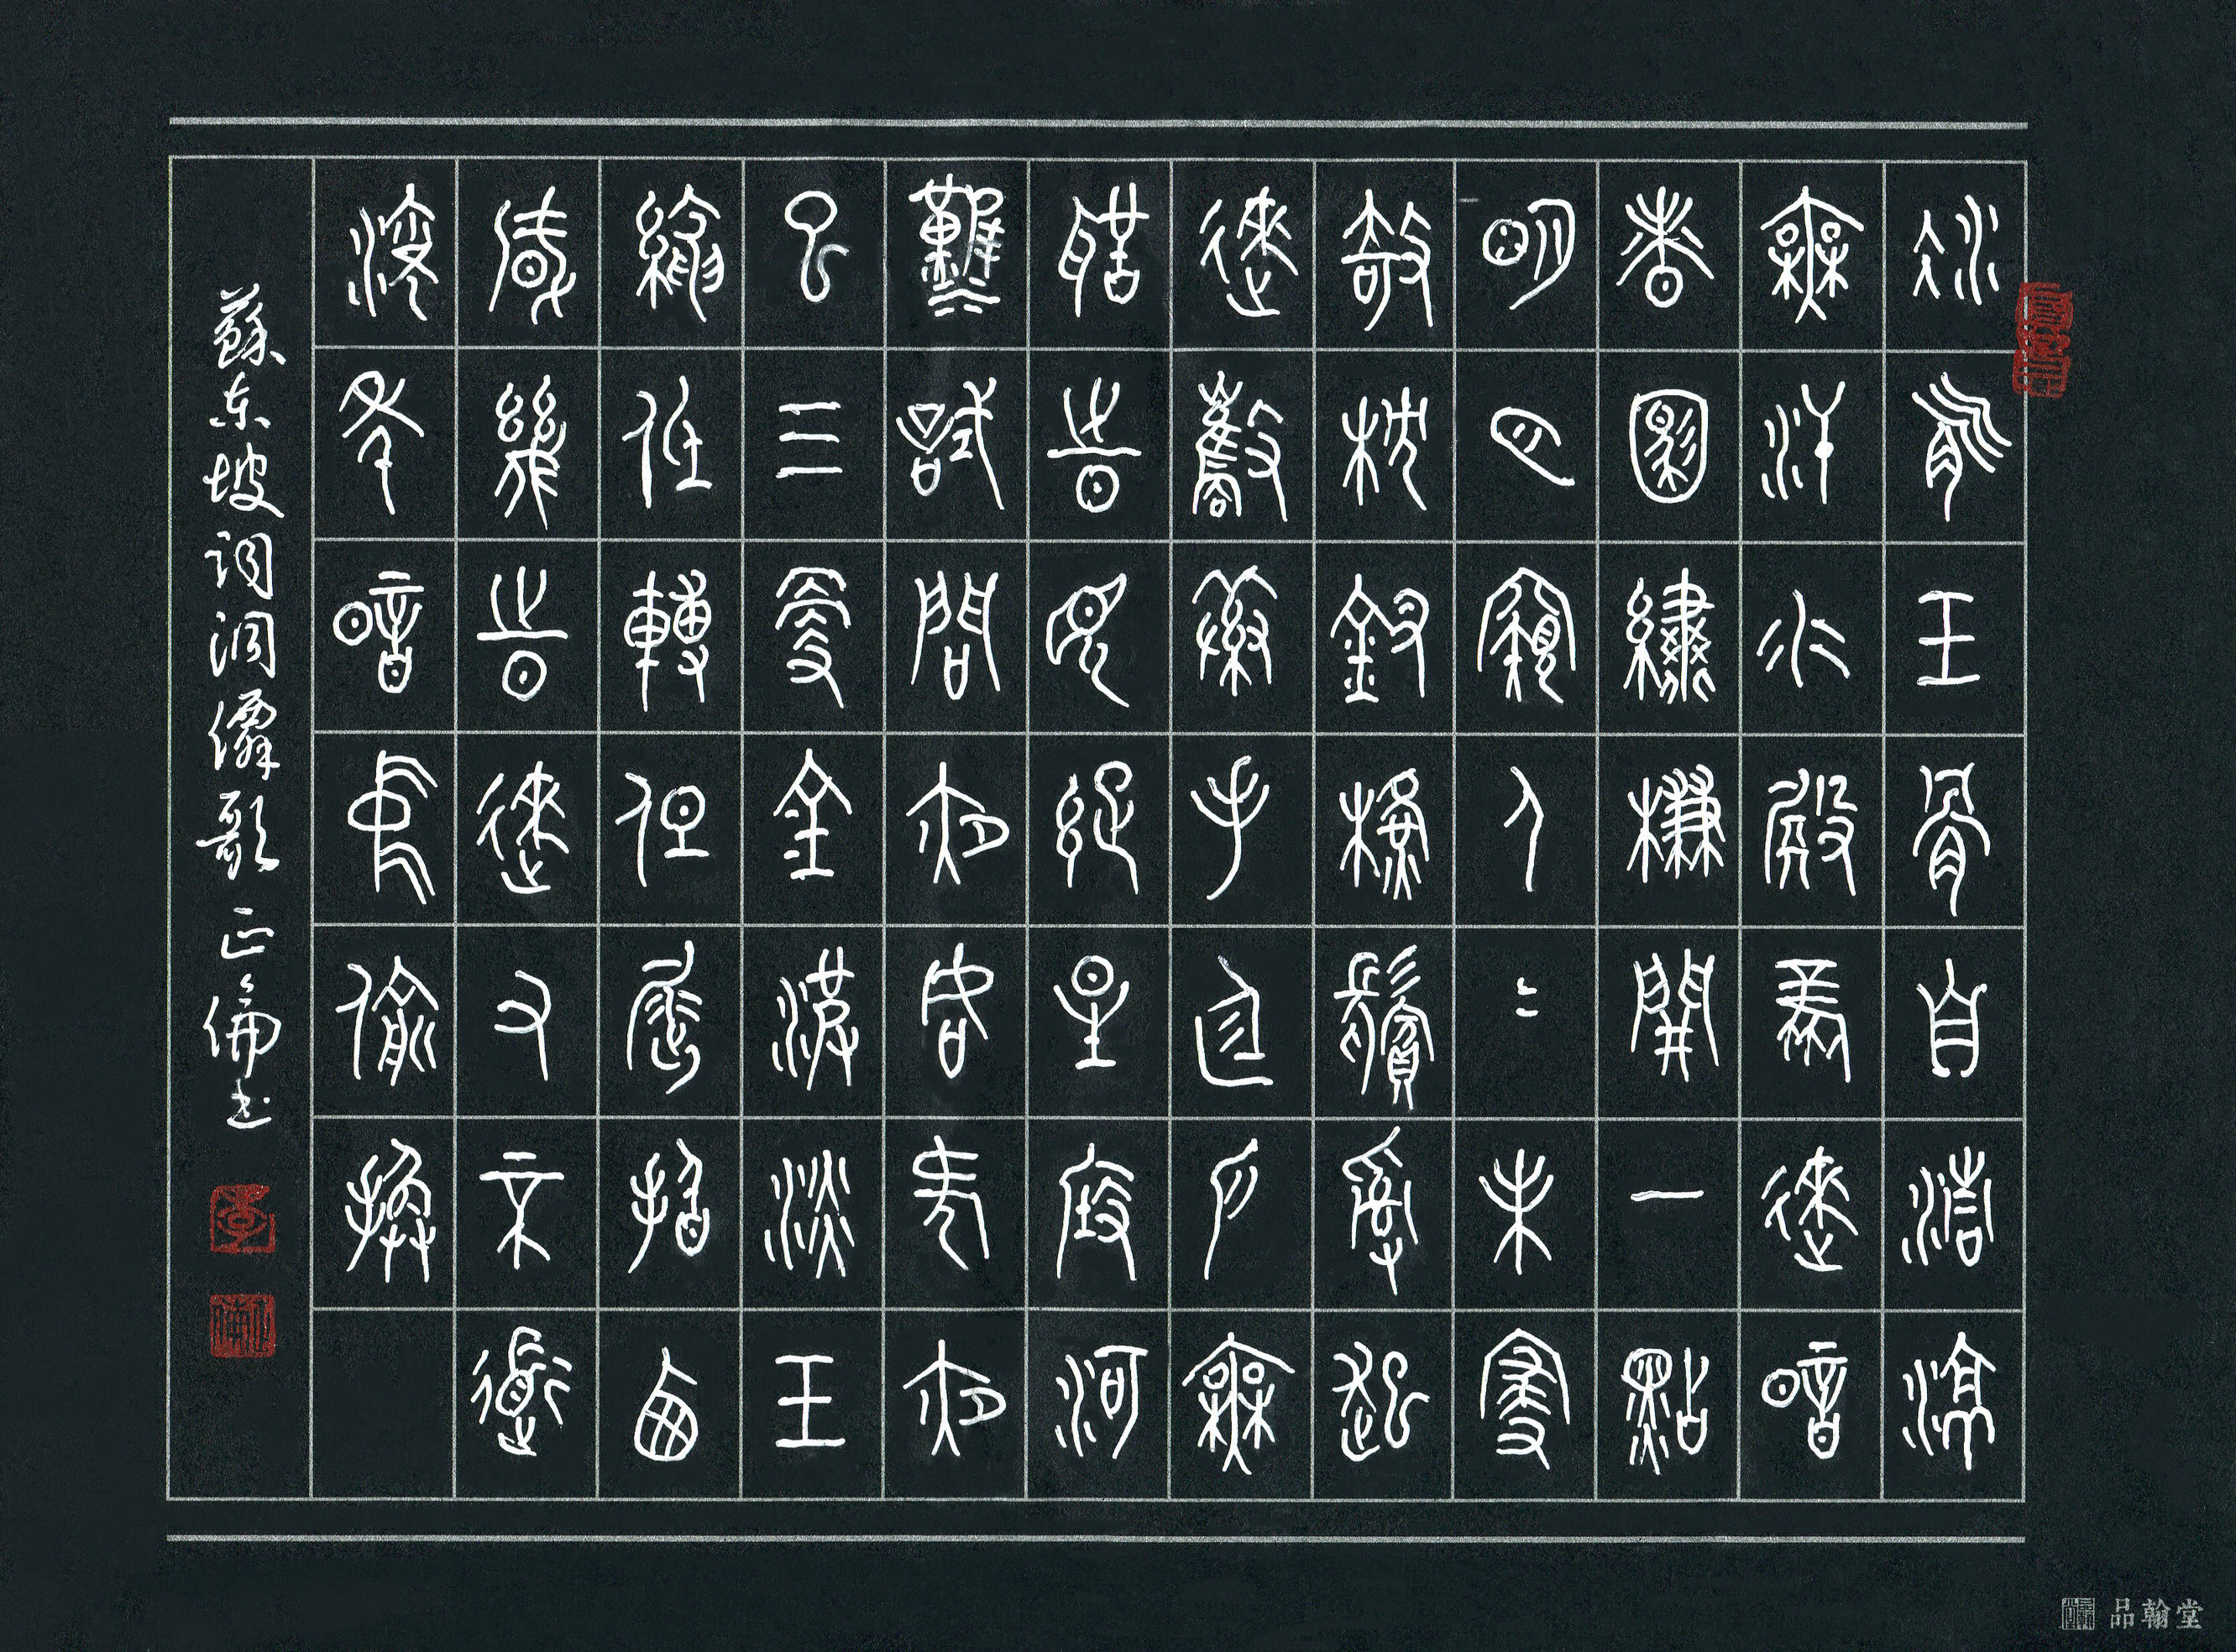 冰肌玉骨自清涼
無汗水殿風來暗
香滿繡簾開一點
明月窺人〻未寢
欹枕釵橫鬢亂起
來攜素手庭戶無
聲時見疏星渡河
漢試問夜如何夜
已三更金波淡玉
繩低轉但屈指西
風幾時來又不道
流年暗中偷換
蘇東坡詞洞僊歌 正倫書
品翰堂